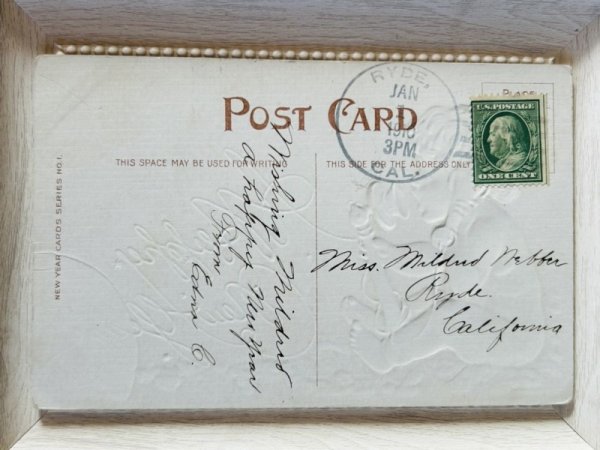 NEW YEAR CARDS SERIES NO. 1.
POST CARD
THIS SPACE MAY BE USED FOR WRITING
THIS SIDE FOR THE ADDRESS ONLY
RYDE,
JAN
1910
3PM
CAL.
PLACE
U.S. POSTAGE
ONE CENT
Wishing Mildred
a happy New Year
From
Edna C.
Miss. Mildred Webber
Ryde.
California